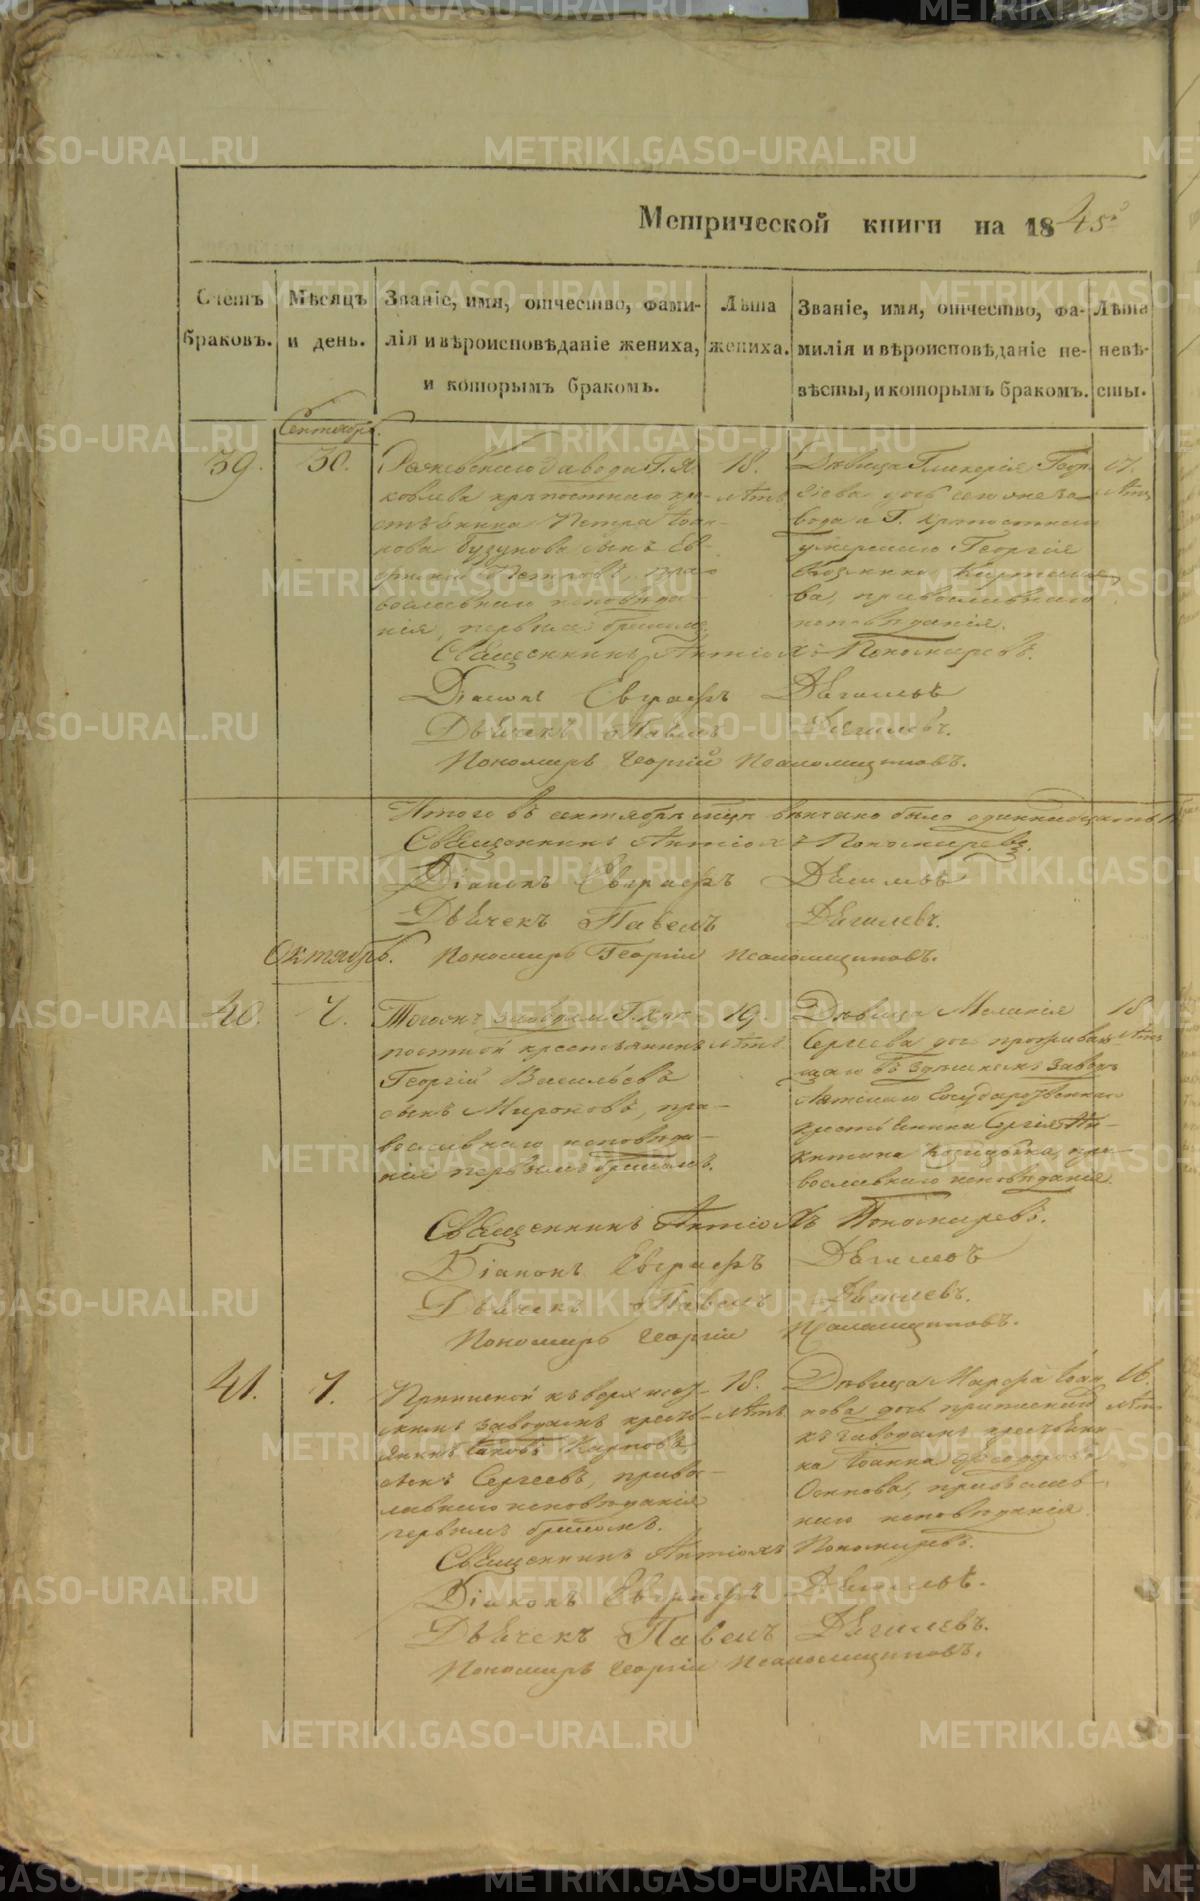 Метрической книги на 1845
Счетъ браковъ.
Мѣсяцъ и день.
Званіе, имя, отчество, фами-
лія и вѣроисповѣданіе жениха,
и которымъ бракомъ.
Лѣта
жениха.
Званіе, имя, отчество, фа-
милія и вѣроисповѣданіе не-
вѣсты, и которымъ бракомъ.
Лѣта
невѣ-
сты.
Сентябрь.
39.
30.
завода Г. Я
ковлева крѣпостнаго кре-
стьянина Петра Іоан-
нова Бузунова сынъ Ев-
Петровъ, пра-
вославнаго исповѣда-
нія, первымъ бракомъ,
18.
лѣтъ
Дѣвица Гликерія Геор
гіева дочь сего же за
вода и Г. крѣпостнаго
умершаго Георгія
ва, православнаго
исповѣданія.
17.
лѣтъ
Священникъ Антіохъ Пономаревъ.
Діаконъ Евграфъ Дягилевъ
Дьячекъ Павелъ Дягилевъ.
Пономарь Георгій Псаломщиковъ.
Итого въ сентябрѣ мцѣ вѣнчано было одиннадцать
Священникъ Антіохъ Пономаревъ.
Діаконъ Евграфъ Дягилевъ
Дьячекъ Павелъ Дягилевъ.
Октябрь.
Пономарь Георгій Псаломщиковъ.
40.
7.
Того жъ завода и Г. крѣ
постной крестьянинъ
Георгій Васильевъ
сынъ Мироновъ, пра-
вославнаго исповѣда-
нія первымъ бракомъ.
19.
лѣтъ
Дѣвица Меланія
Сергѣева доч. прожива
щаго въ заводѣ
Вятскаго Государственнаго
крестьянина Сергія Ни-
китина пра-
вославнаго исповѣданія.
18
лѣтъ
Священникъ Антіохъ Пономаревъ.
Діаконъ Евграфъ Дягилевъ
Дьячекъ Павелъ Дягилевъ.
Пономарь Георгій Псаломщиковъ.
41.
7.
скимъ заводамъ кресть-
янинъ Іаковъ Карповъ
сынъ Сергеевъ, право-
славнаго исповѣданія
первымъ бракомъ.
18.
лѣтъ
Дѣвица Марѳа Іоан
нова дочь
къ заводамъ крестьяни
на Іоанна Ѳеодорова
Осипова, православ-
наго исповѣданія
16.
лѣтъ
Священникъ Антіохъ Пономаревъ.
Діаконъ Евграфъ Дягилевъ.
Дьячекъ Павелъ Дягилевъ.
Пономарь Георгій Псаломщиковъ.
METRIKI.GASO-URAL.RU